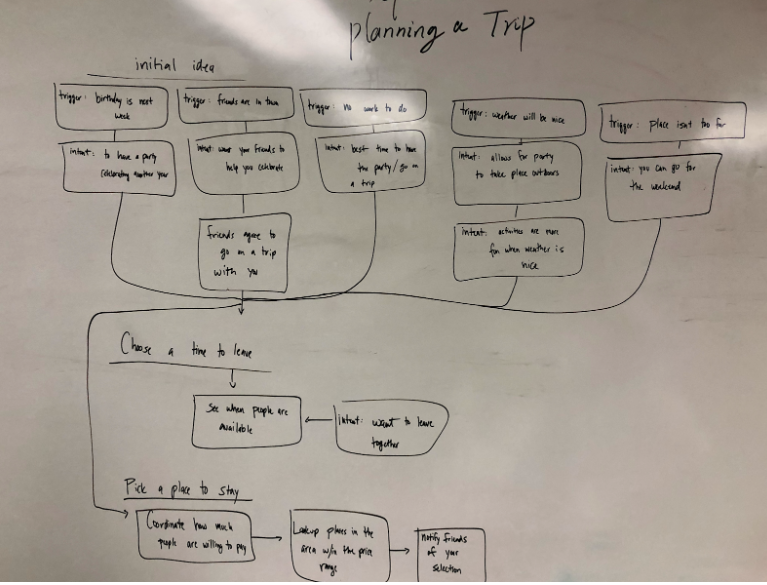 planning a Trip
initial idea
trigger: birthday is next
week
intent: to have a party
celebrating another year
trigger: friends are in town
intent: want your friends to
help you celebrate
friends agree to
go on a trip
with you
trigger: no work to do
intent: best time to have
the party/go on
a trip
trigger: weather will be nice
intent: allows for party
to take place outdoors
intent: activities are more
fun when weather is
nice
trigger: place isnt too far
intent: you can go for
the weekend
Choose a time to leave
See when people are
available
intent: want to leave
together
Pick a place to stay
Coordinate how much
people are willing to pay
Lookup places in the
area w/in the price
range
notify friends
of your
selection